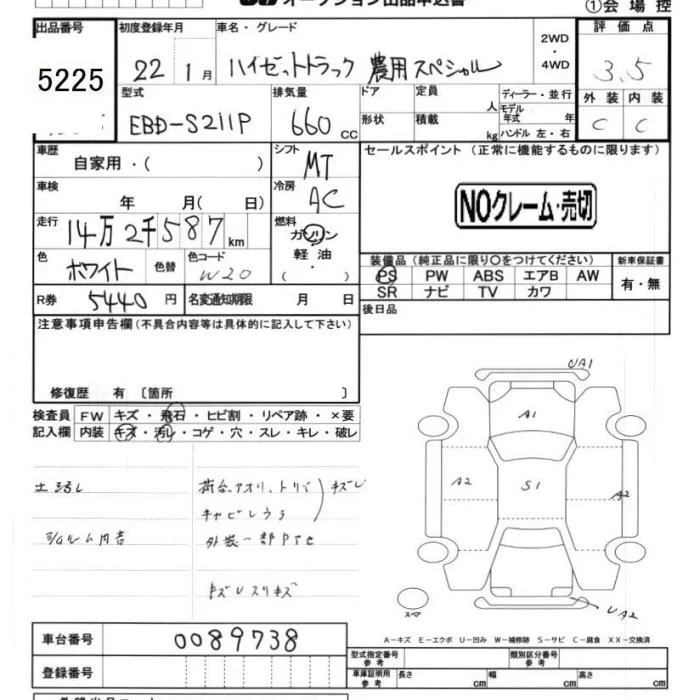 オークション出品申込書 ①会場控
出品番号 初度登録年月 車名・グレード 2WD・4WD 評価点
5225 22 1月 ハイゼットトラック 農用スペシャル 3.5
型式 排気量 ドア 定員 人 ディーラー・並行 外装 内装
EBD-S211P 660 cc 形状 積載 kg モデル年式 年 ハンドル 左・右 C C
車歴 自家用・( ) シフト MT セールスポイント (正常に機能するものに限ります)
車検 年 月(日) 冷房 AC NOクレーム・売切
走行 14万2千587km 燃料 ガソリン・軽油・( )
色 ホワイト 色替 色コード W20 装備品 (純正品に限り〇をつけてください) 新車保証書
PS PW ABS エアB AW 有・無
SR ナビ TV カワ
R券 5440円 名変通知期限 月 日 後日品
注意事項申告欄(不具合内容等は具体的に記入して下さい)
修復歴 有 〔箇所 〕
検査員 FW キズ・飛石・ヒビ割・リペア跡・×要
記入欄 内装 キズ・汚レ・コゲ・穴・スレ・キレ・破レ
荷台、アオリ、トリイ キズU
キャビンウラ
外装一部
キズUスリキズ
UA1
A1
A2 S1 A2
UA2
スペア
A-キズ E-エクボ U-凹み W-補修跡 S-サビ C-腐食 XX-交換済
車台番号 0089738
登録番号
型式指定番号 参考 類別区分番号 参考
車庫証明用 参考 長さ cm 幅 cm 高さ cm